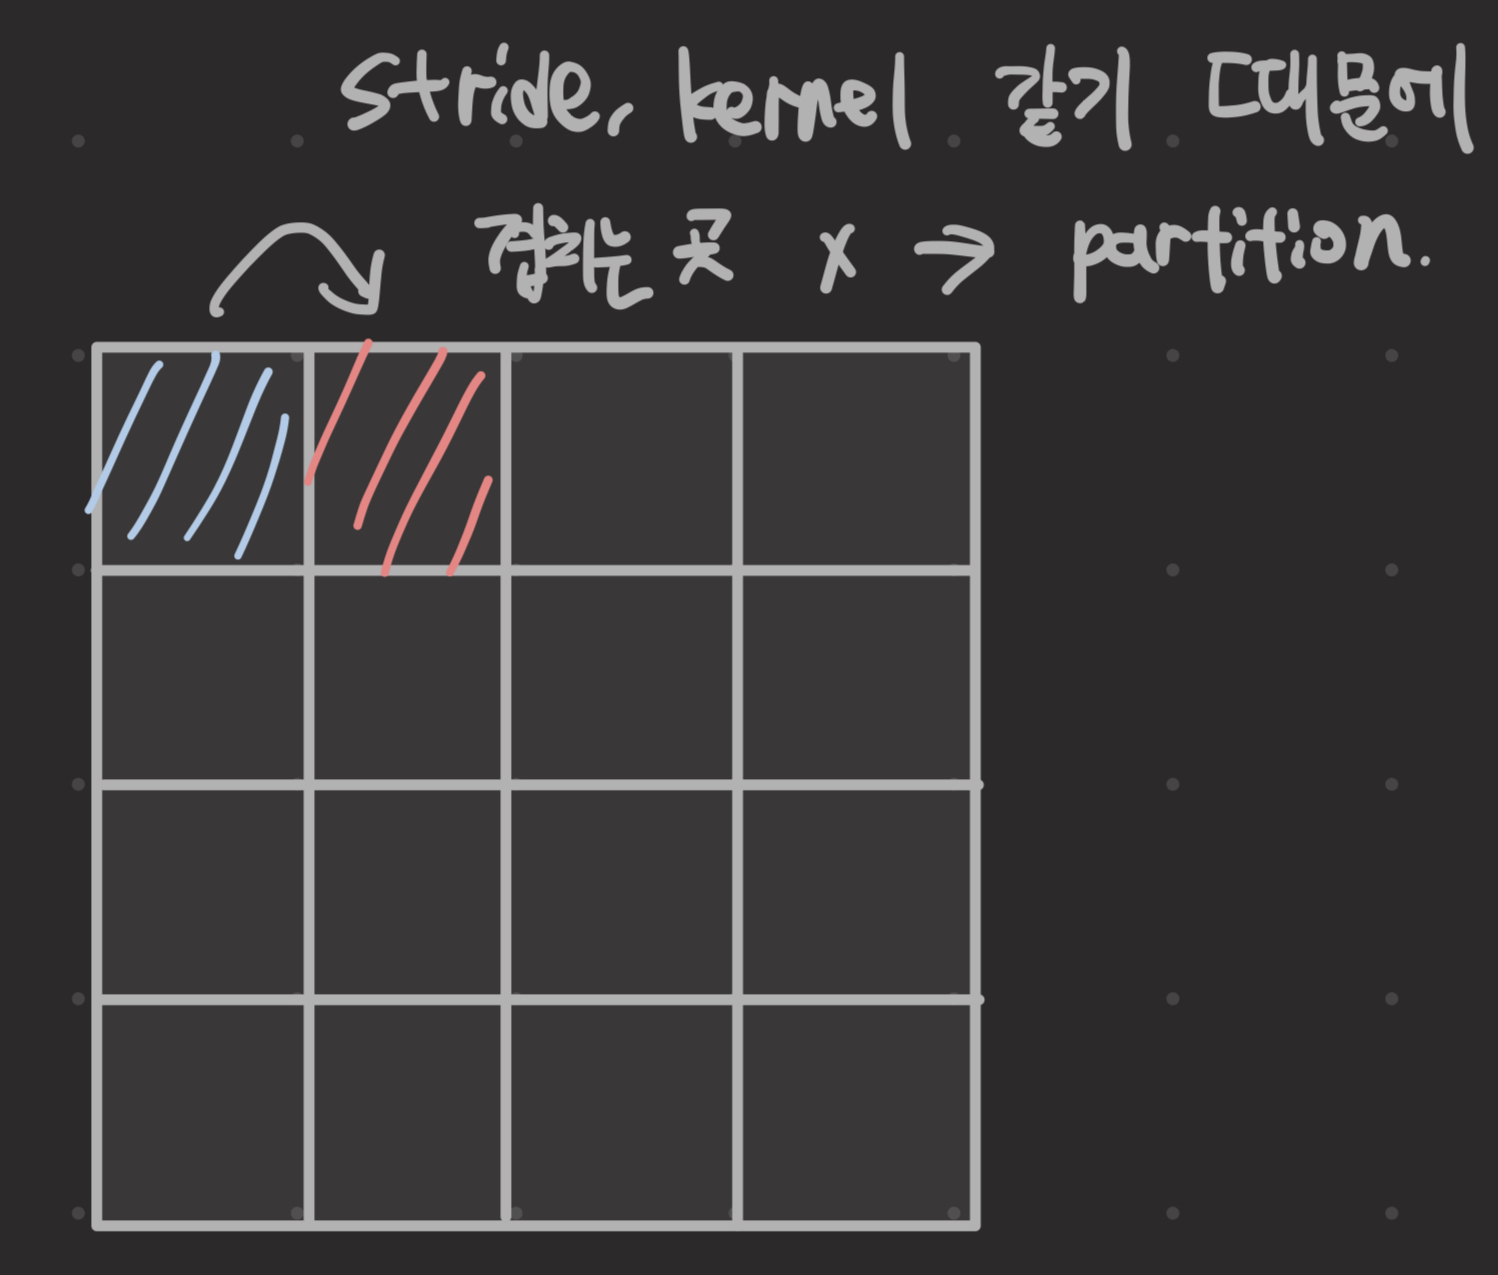 Stride, kernel 같기 때문에
겹치는 곳 x → partition.